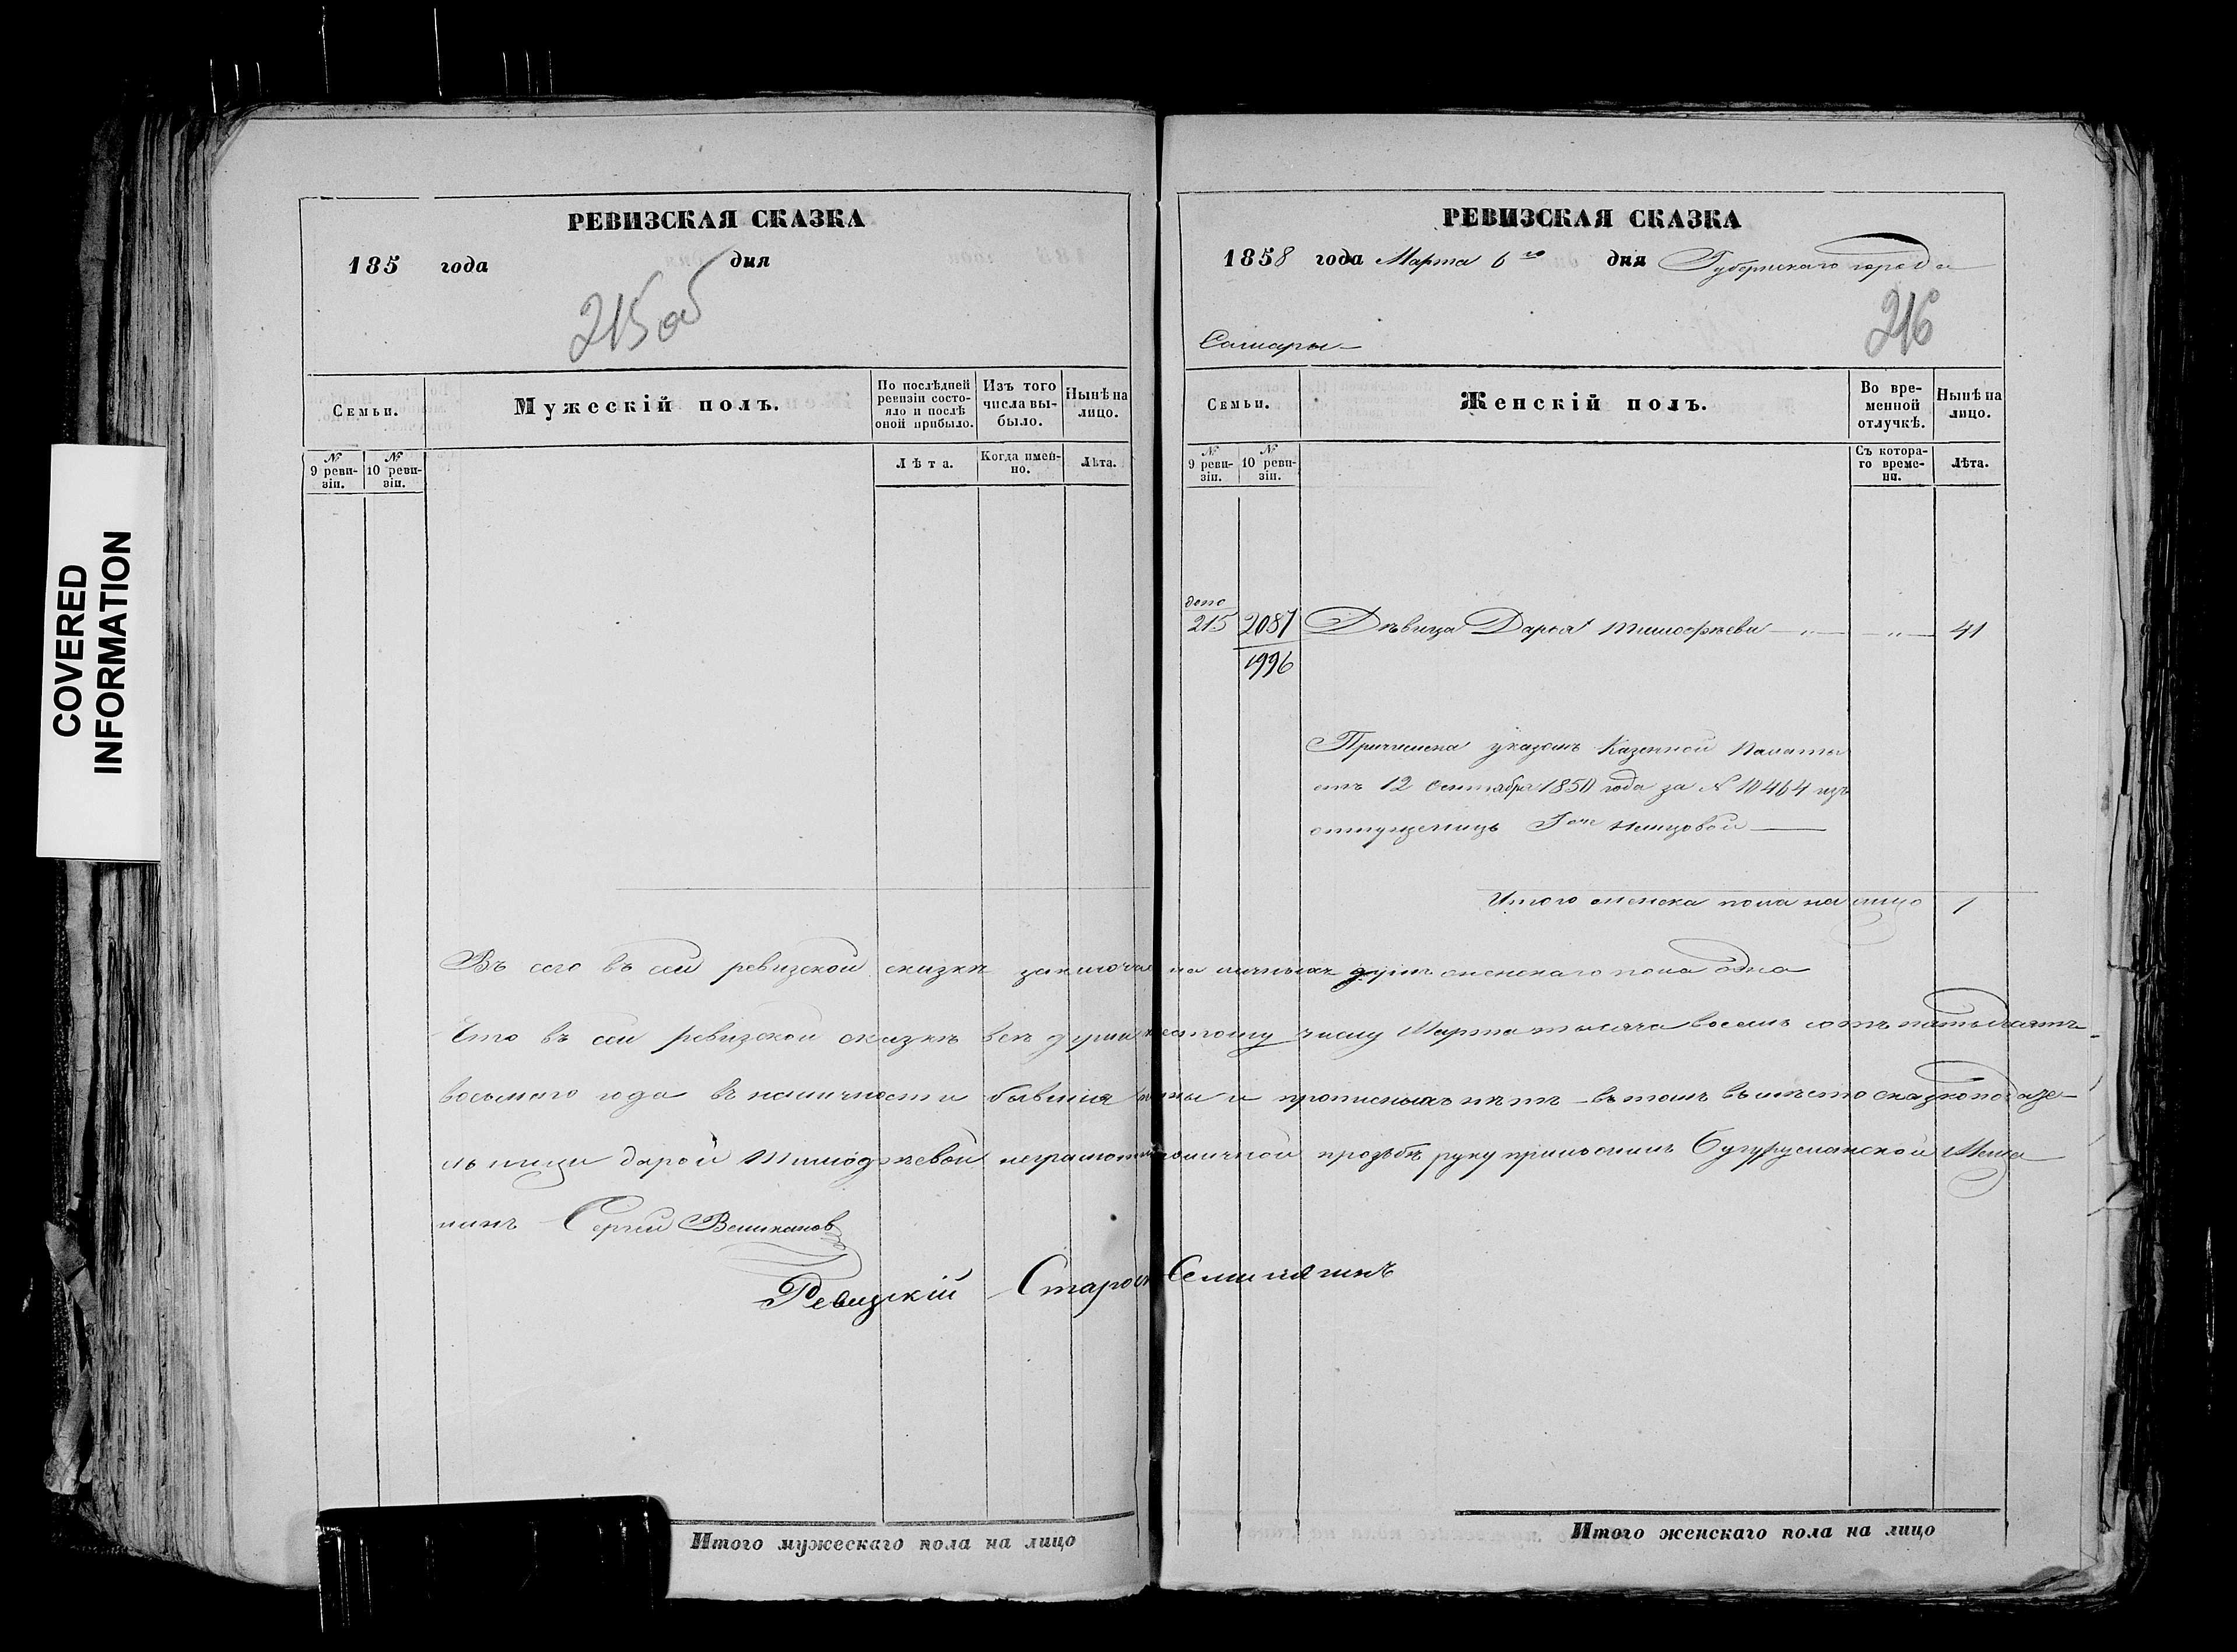 COVERED
INFORMATION
РЕВИЗСКАЯ СКАЗКА
185 года дня
215 об
Семьи.
Мужескій полъ.
По послѣдней ревизіи состояло и послѣ оной прибыло.
Изъ того числа выбыло.
Нынѣ на лицо.
№ 9 ревизіи.
№ 10 ревизіи.
Лѣта.
Когда именно.
Лѣта.
РЕВИЗСКАЯ СКАЗКА
1858 года Марта 6го дня Губернскаго города
216
Самары
Семьи.
Женскій полъ.
Во временной отлучкѣ.
Нынѣ на лицо.
№ 9 ревизіи.
№ 10 ревизіи.
Съ котораго времени.
Лѣта.
допо
215 2087 Дѣвица Дарья Тимофѣева — „ — „ — 41
1996
Причислена указомъ Казенной Палаты
отъ 12 Сентября 1850 года за № 10464 изъ
отпущеницъ Гжи
Итого женска пола на лицо 1
Въ сего въ сей ревизской сказкѣ заключа на личныхъ душъ женскаго пола одна
Что въ сей ревизской сказкѣ всѣ души шестому числу Марта тысяча восемь сотъ пятьдесятъ
восьмаго года въ наличности бывшія и прописныхъ нѣтъ въ томъ въ мѣсто сказкоподате
льницы Дарьи Тимофѣевой неграмотной личной прозьбѣ руку приложилъ Бугурусланской Меща
нинъ Сергей Великанов
Ревизскій Старос